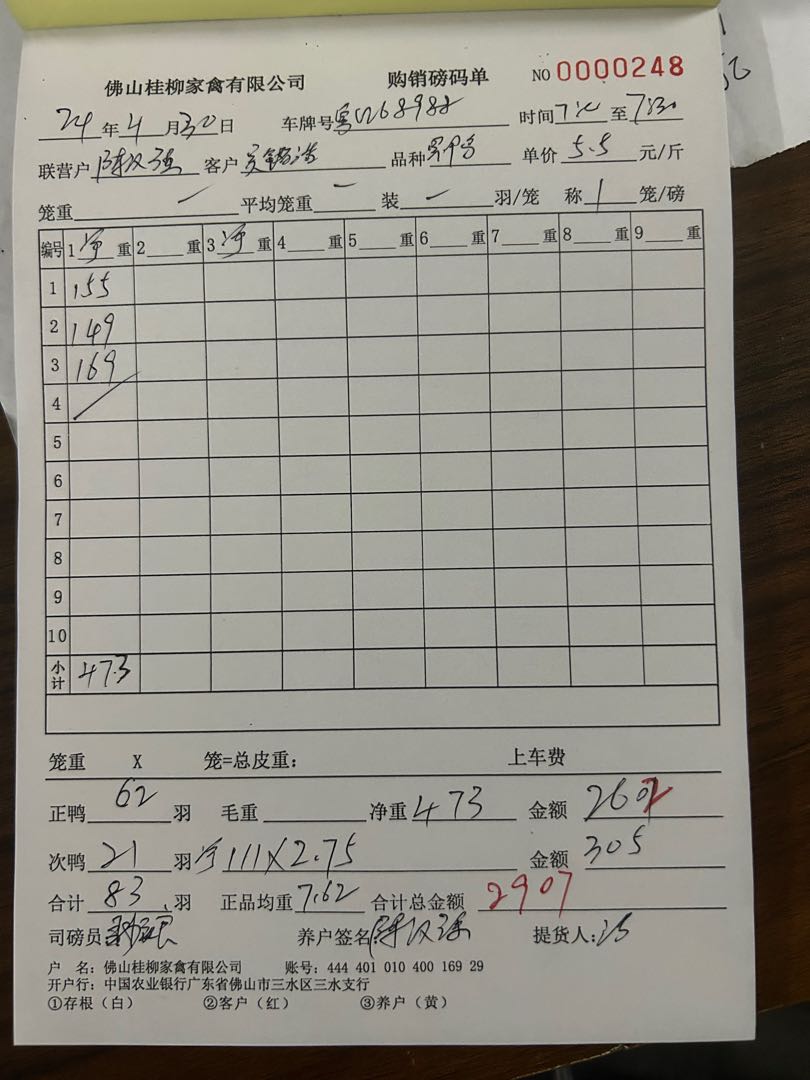 佛山桂柳家禽有限公司 购销磅码单 NO 0000248
24年4月30日 车牌号 68988 时间 至7:30
联营户陈汉强 客户 品种 单价5.5元/斤
笼重 — 平均笼重 — 装 — 羽/笼 称 1 笼/磅
编号 1净重 2 重 3净重 4 重 5 重 6 重 7 重 8 重 9 重
1 155
2 149
3 169
4
5
6
7
8
9
10
小计 473
笼重 X 笼=总皮重: 上车费
正鸭 62 羽 毛重 净重 473 金额 2602
次鸭 21 羽 净111X2.75 金额 305
合计 83 羽 正品均重 7.62 合计总金额 2907
司磅员 养户签名陈汉强 提货人:
户 名: 佛山桂柳家禽有限公司 账号: 444 401 010 400 169 29
开户行: 中国农业银行广东省佛山市三水区三水支行
①存根(白) ②客户(红) ③养户(黄)